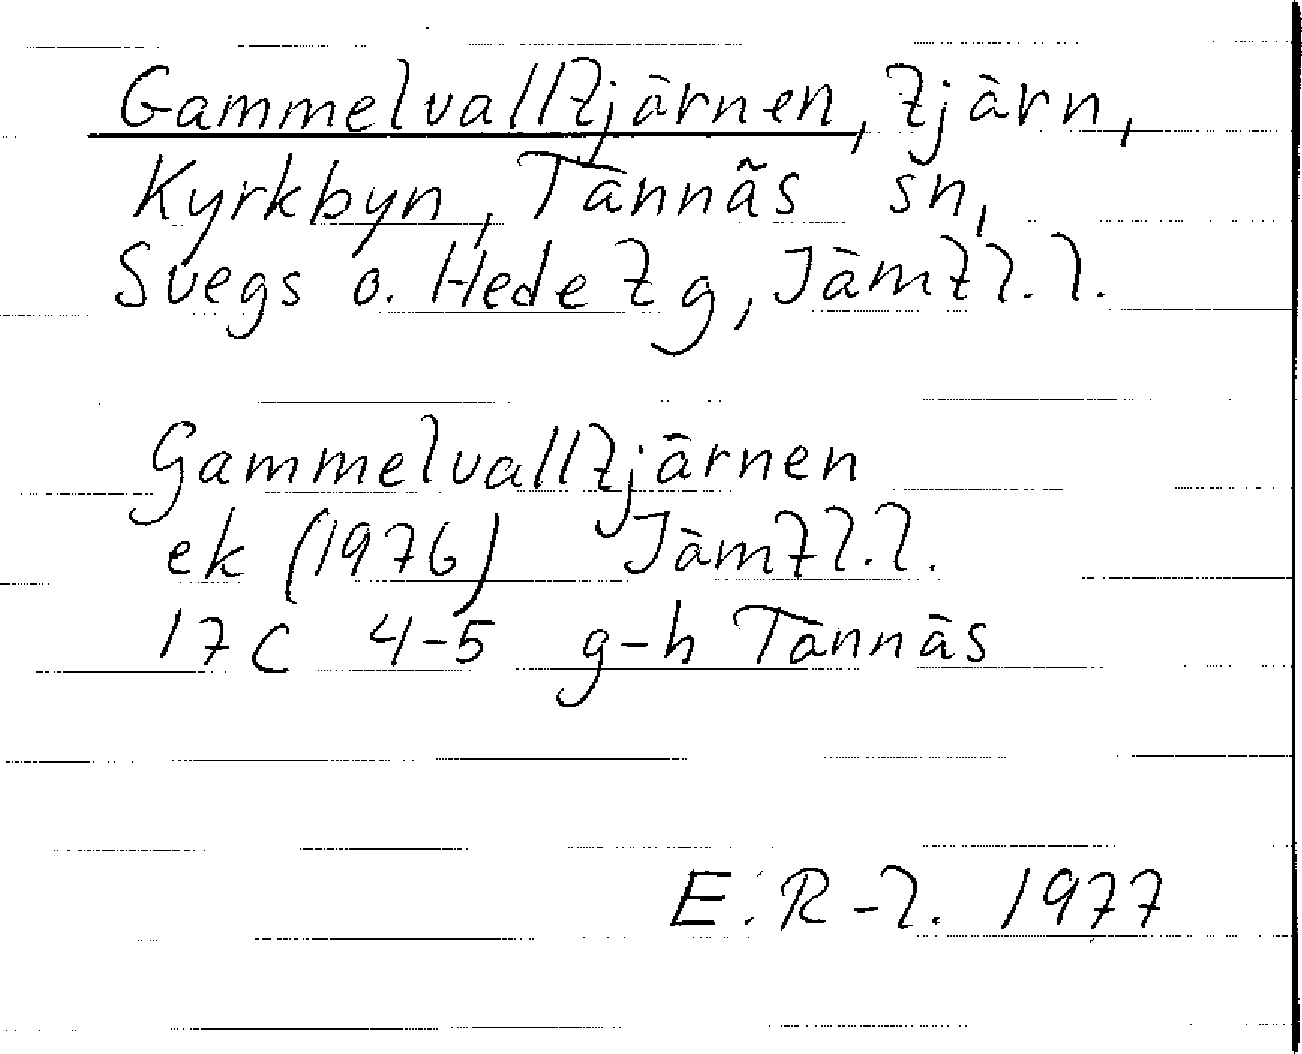 Gammelvalltjärnen, tjärn,
Kyrkbyn, Tännäs sn,
Svegs o. Hede tg, Jämtl. l.
Gammelvalltjärnen
ek (1976) Jämtl. l.
17C 4-5 g-h Tännäs
E. R-l. 1977